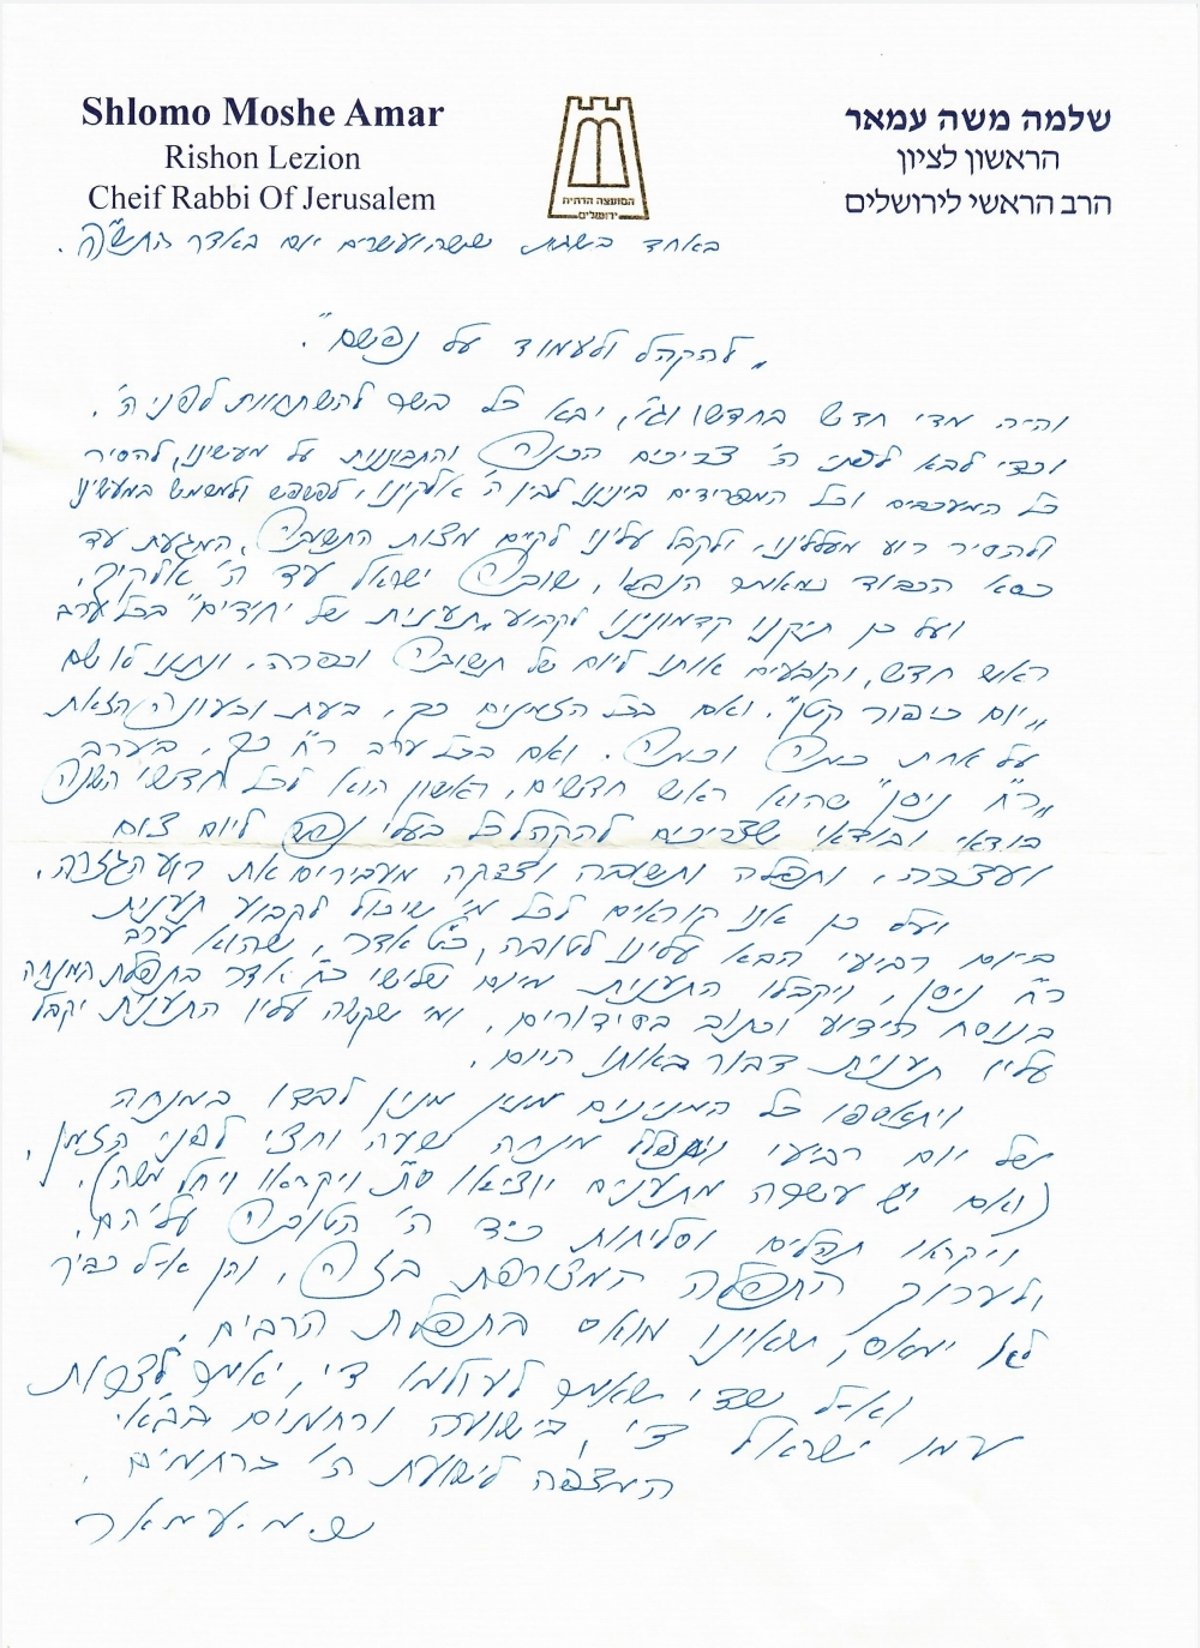 Shlomo Moshe Amar
Rishon Lezion
Cheif Rabbi Of Jerusalem
שלמה משה עמאר
הראשון לציון
הרב הראשי לירושלים
המועצה הדתית
ירושלים
באחד בשבת ששה ועשרים יום באדר התש"פ.
"להקהל ולעמוד על נפשם".
והיה מדי חדש בחדשו וגו', יבא כל בשר להשתחוות לפני ה'.
וכדי לבא לפני ה' צריכים הכנה והתבוננות על מעשינו, להסיר
כל המעכבים וכל המפרידים בינינו לבין ה' אלקינו, לפשפש ולמשמש במעשינו
ולהסיר רוע מעללינו, ולקבל עלינו לקיים מצות התשובה, המגעת עד
כסא הכבוד כמאמר הנביא, שובה ישראל עד ה' אלקיך.
ועל כן תיקנו קדמונינו לקבוע "תענית של יחידים" בכל ערב
ראש חדש, וקובעים אותו ליום של תשובה וכפרה, ונתנו לו שם
"יום כיפור קטן". ואם בכל הזמנים כך, בעת וכעונה הזאת
על אחת כמה וכמה. ואם בכל ערב ר"ח כך, בערב
"ר"ח ניסן" שהוא ראש חדשים, ראשון הוא לכל חדשי השנה
בודאי ובודאי שצריכים להקהל כל בעלי נפש ליום צום
ועצרה, ותפלה ותשובה וצדקה מעבירים את רוע הגזרה.
ועל כן אנו קוראים לכל מי שיכול לקבוע תענית
ביום רביעי הבא עלינו לטובה, כ"ט אדר, שהוא ערב
ר"ח ניסן, ויקבלו התענית מיום שלישי כ"ח אדר בתפלת המנחה
בנוסח הידוע וכתוב בסידורים, ומי שקשה עליו התענית יקבל
עליו תענית דבור באותו היום.
ויתאספו כל המנינים מנין מנין לבדו במנחה
של יום רביעי ויתפללו מנחה שעה וחצי לפני הזמן,
(ואם יש עשרה מתענים יוציאו ס"ת ויקראו ויחל משה).
ויקראו תהלים וסליחות כיד ה' הטובה עליהם.
ולערוך התפלה המצורפת בזה, והן א-ל כביר
לא ימאס, שאינו מואס בתפלת הרבים.
וא-ל שדי שאמר לעולמו די, יאמר לצרות
עמו ישראל די, בישועה ורחמים בב"א.
המצפה לישועת ה' ברחמים,
ש.מ.עמאר